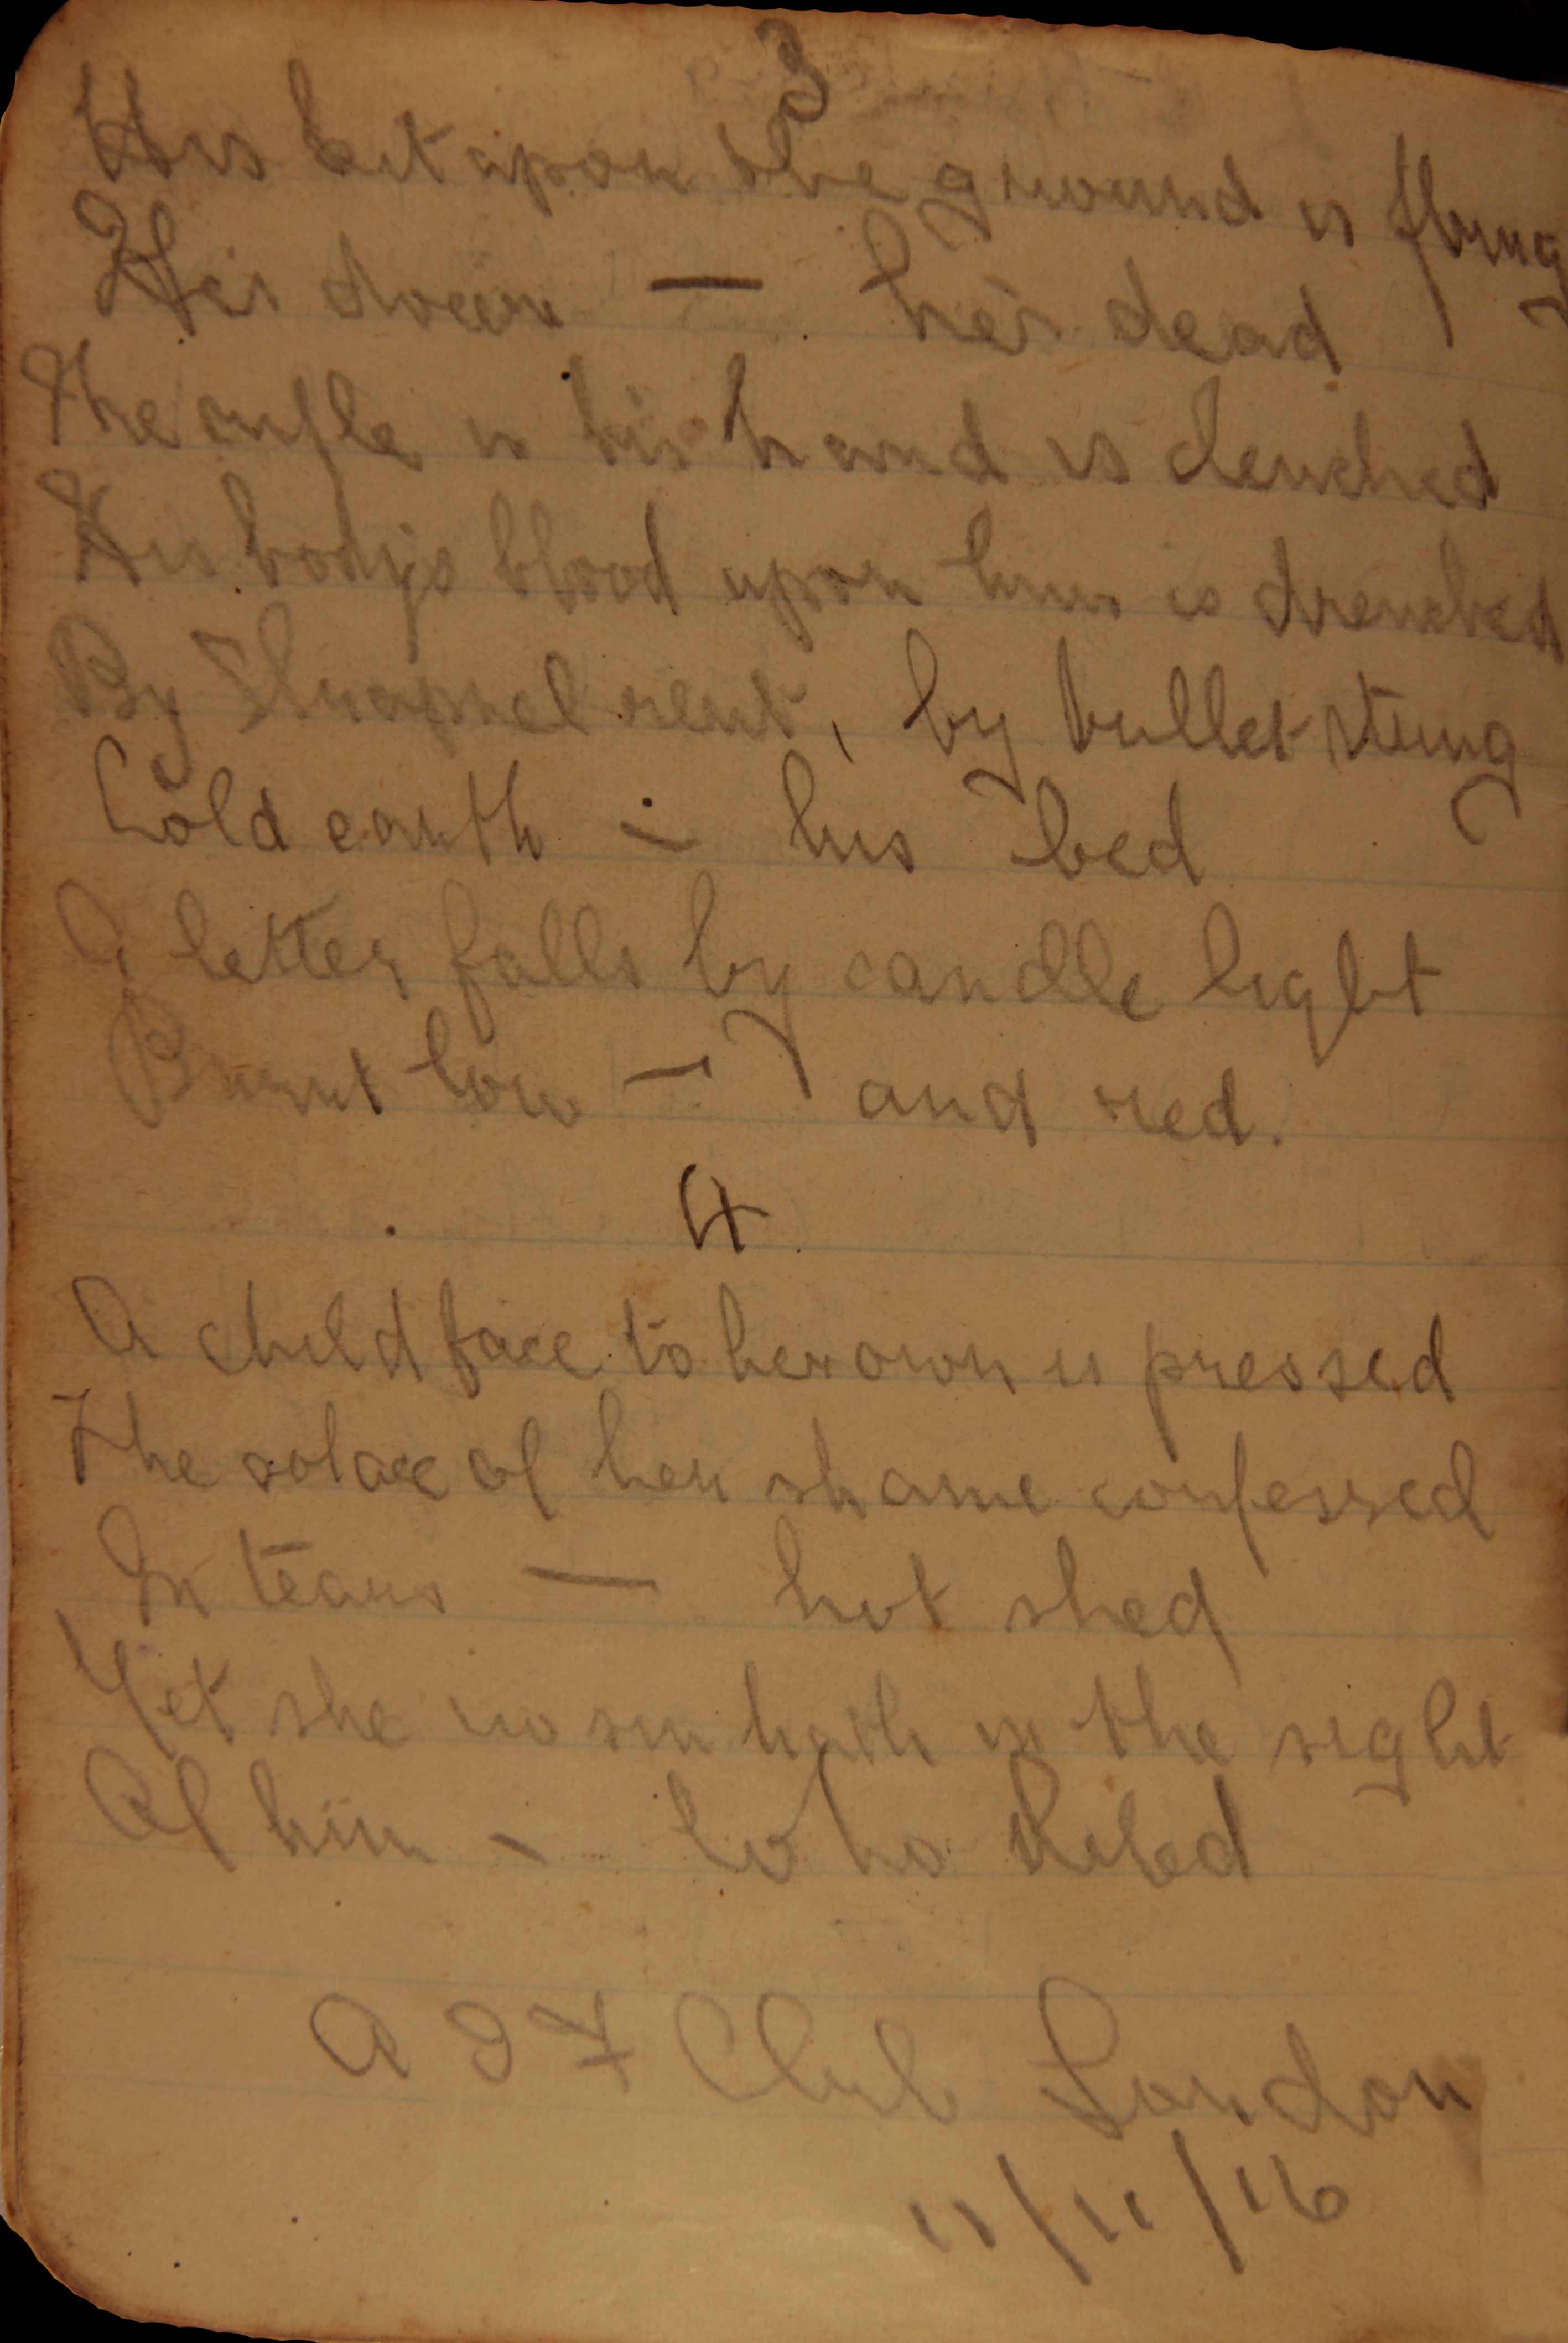 3
His kit upon the ground is flung
He's down — he's dead
The rifle in his hand is clenched
His body's blood upon him is drenched
By Shrapnel rent, by bullet stung
Cold earth — his bed
A letter falls by candle light
Burnt low — and red.
4
A child face to her own is pressed
The solace of her shame confessed
In tears — hot shed
Yet she no sin hath in the sight
Of him — who
A I F Club London
11/11/16